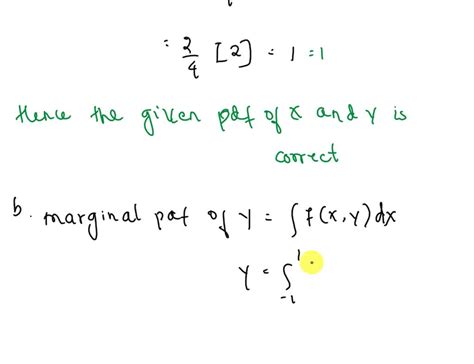 = 2/4 [2] = 1 = 1
Hence the given pdf of x and y is
correct
b. marginal pdf of y = ∫ f(x,y) dx
y = ∫_{-1}^{1}